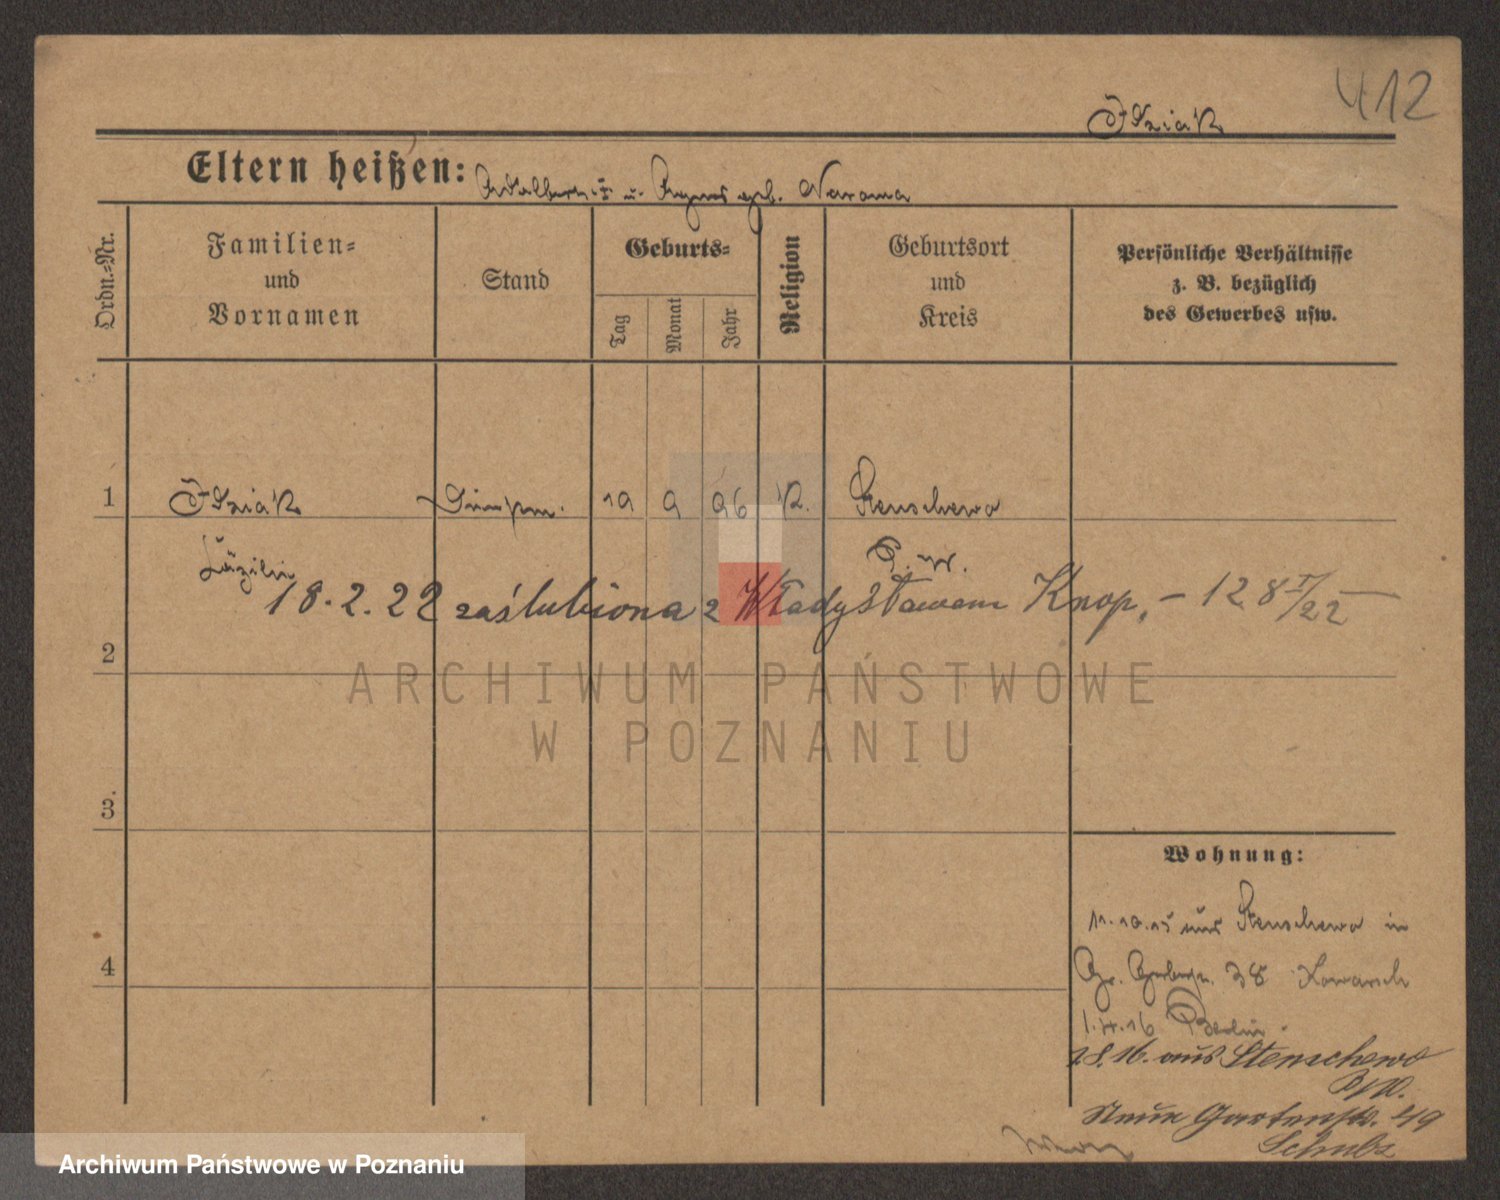 412
Itziak
Eltern heißen: Adalbert † u. Agnes geb. Narama
Ordn.=Nr.
Familien=
und
Vornamen
Stand
Geburts=
Tag
Monat
Jahr
Religion
Geburtsort
und
Kreis
Persönliche Verhältnisse
z. B. bezüglich
des Gewerbes usw.
1
19 9 96 K. Stenschewo
P. W.
18.2.22 zaślubiona z Władysławem Knop, – 128 I/22
2
ARCHIWUM PAŃSTWOWE
W POZNANIU
3
Wohnung:
11.10.15 aus Stenschewo in
Gr. Gerberstr. 38
4
1.4.16 Berlin
1.8.16. aus Stenschewo
Neue Gartenstr. 49
Schulz
Archiwum Państwowe w Poznaniu